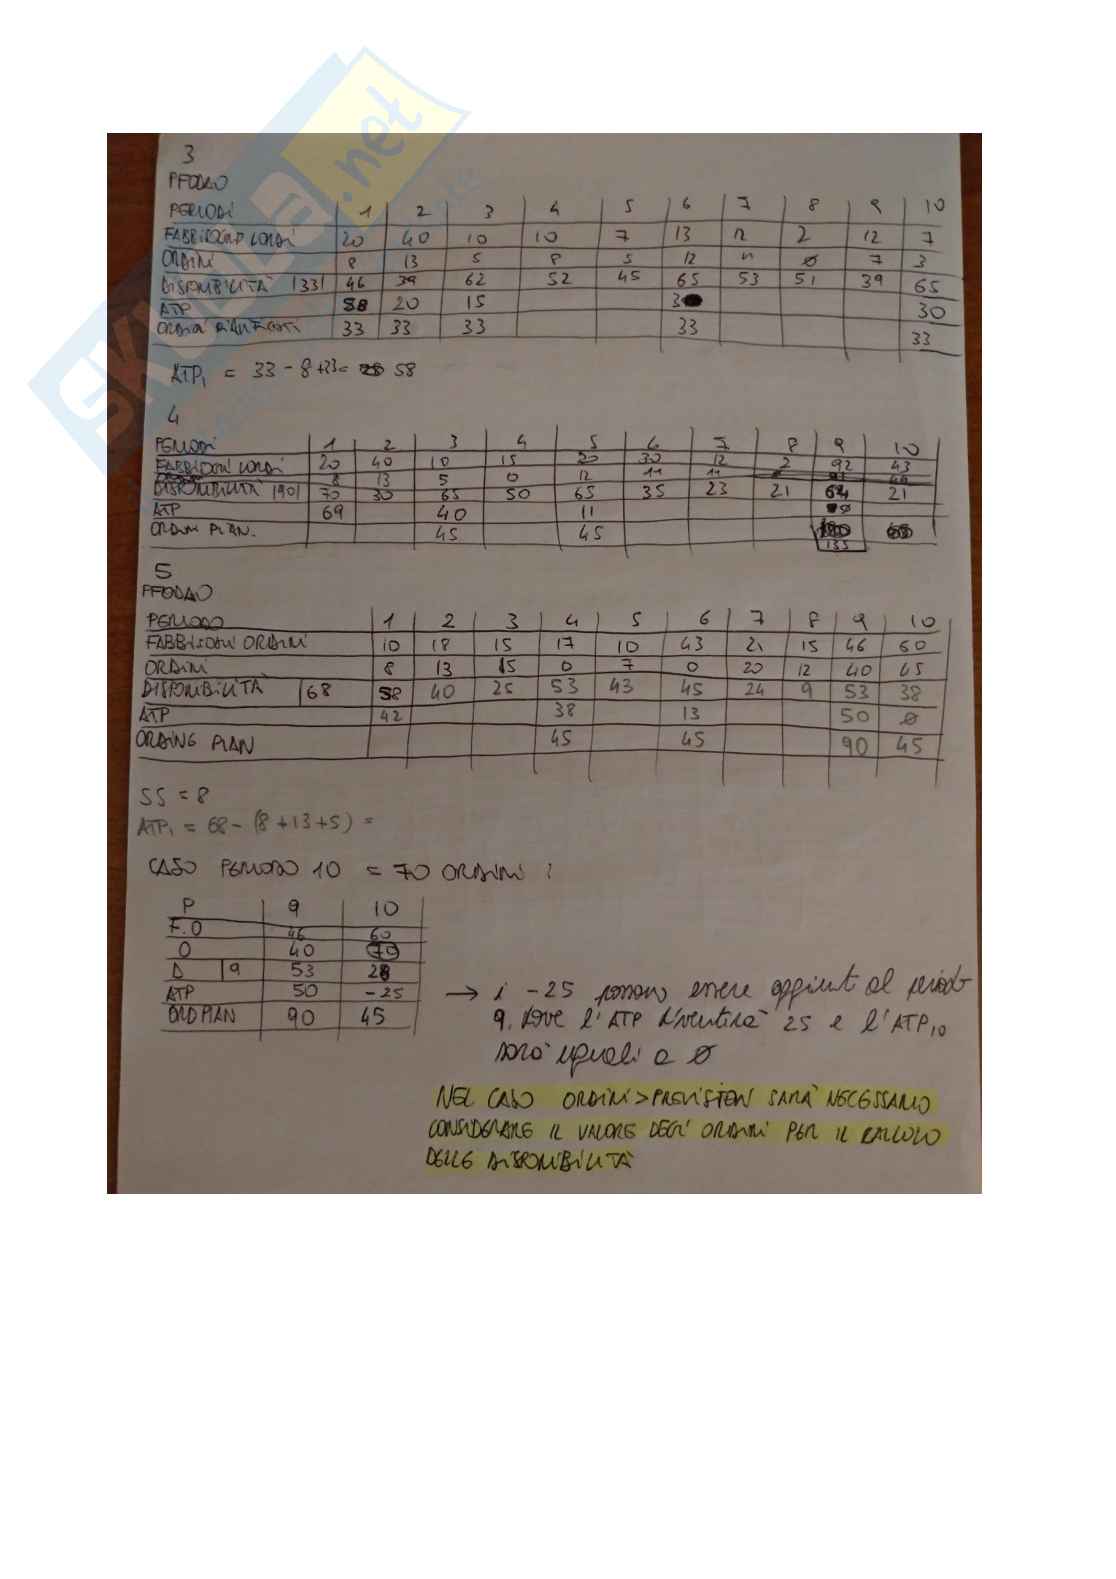 SKUOLA.net
3
PERIODI 1 2 3 4 5 6 7 8 9 10
FABBISOGNO LORDI 20 40 10 10 7 13 12 2 12 7
ORDINI 8 13 5 8 5 12 11 ø 7 3
DISPONIBILITÀ |33| 46 39 62 52 45 65 53 51 39 65
ATP 58 20 15 3 30
ORDINI PIANIFICATI 33 33 33 33 33
ATP₁ = 33 - 8 + 33 = 58
4
PERIODI 1 2 3 4 5 6 7 8 9 10
FABBISOGNI LORDI 20 40 10 15 20 30 12 2 92 43
8 13 5 0 12 11 11
DISPONIBILITÀ |90| 70 30 65 50 65 35 23 21 64 21
ATP 69 40 11
ORDINI PLAN. 45 45 135
5
PERIODO 1 2 3 4 5 6 7 8 9 10
FABBISOGNI ORDINI 10 18 15 17 10 43 21 15 46 60
ORDINI 8 13 15 0 7 0 20 12 40 45
DISPONIBILITÀ |68 58 40 25 53 43 45 24 9 53 38
ATP 42 38 13 50 ø
ORDING PLAN 45 45 90 45
SS = 8
ATP₁ = 68 - (8 + 13 + 5) =
CASO PERIODO 10 = 70 ORDINI :
P 9 10
F.O 46 60
O 40 70
D |9 53 28
ATP 50 -25
ORD PLAN 90 45
→ i -25 possono essere aggiunti al periodo
9. Dove l'ATP diventerà 25 e l'ATP₁₀
sarà uguali a ø
NEL CASO ORDINI > PREVISIONI SARÀ NECESSARIO
CONSIDERARE IL VALORE DEGLI ORDINI PER IL CALCOLO
DELLE DISPONIBILITÀ